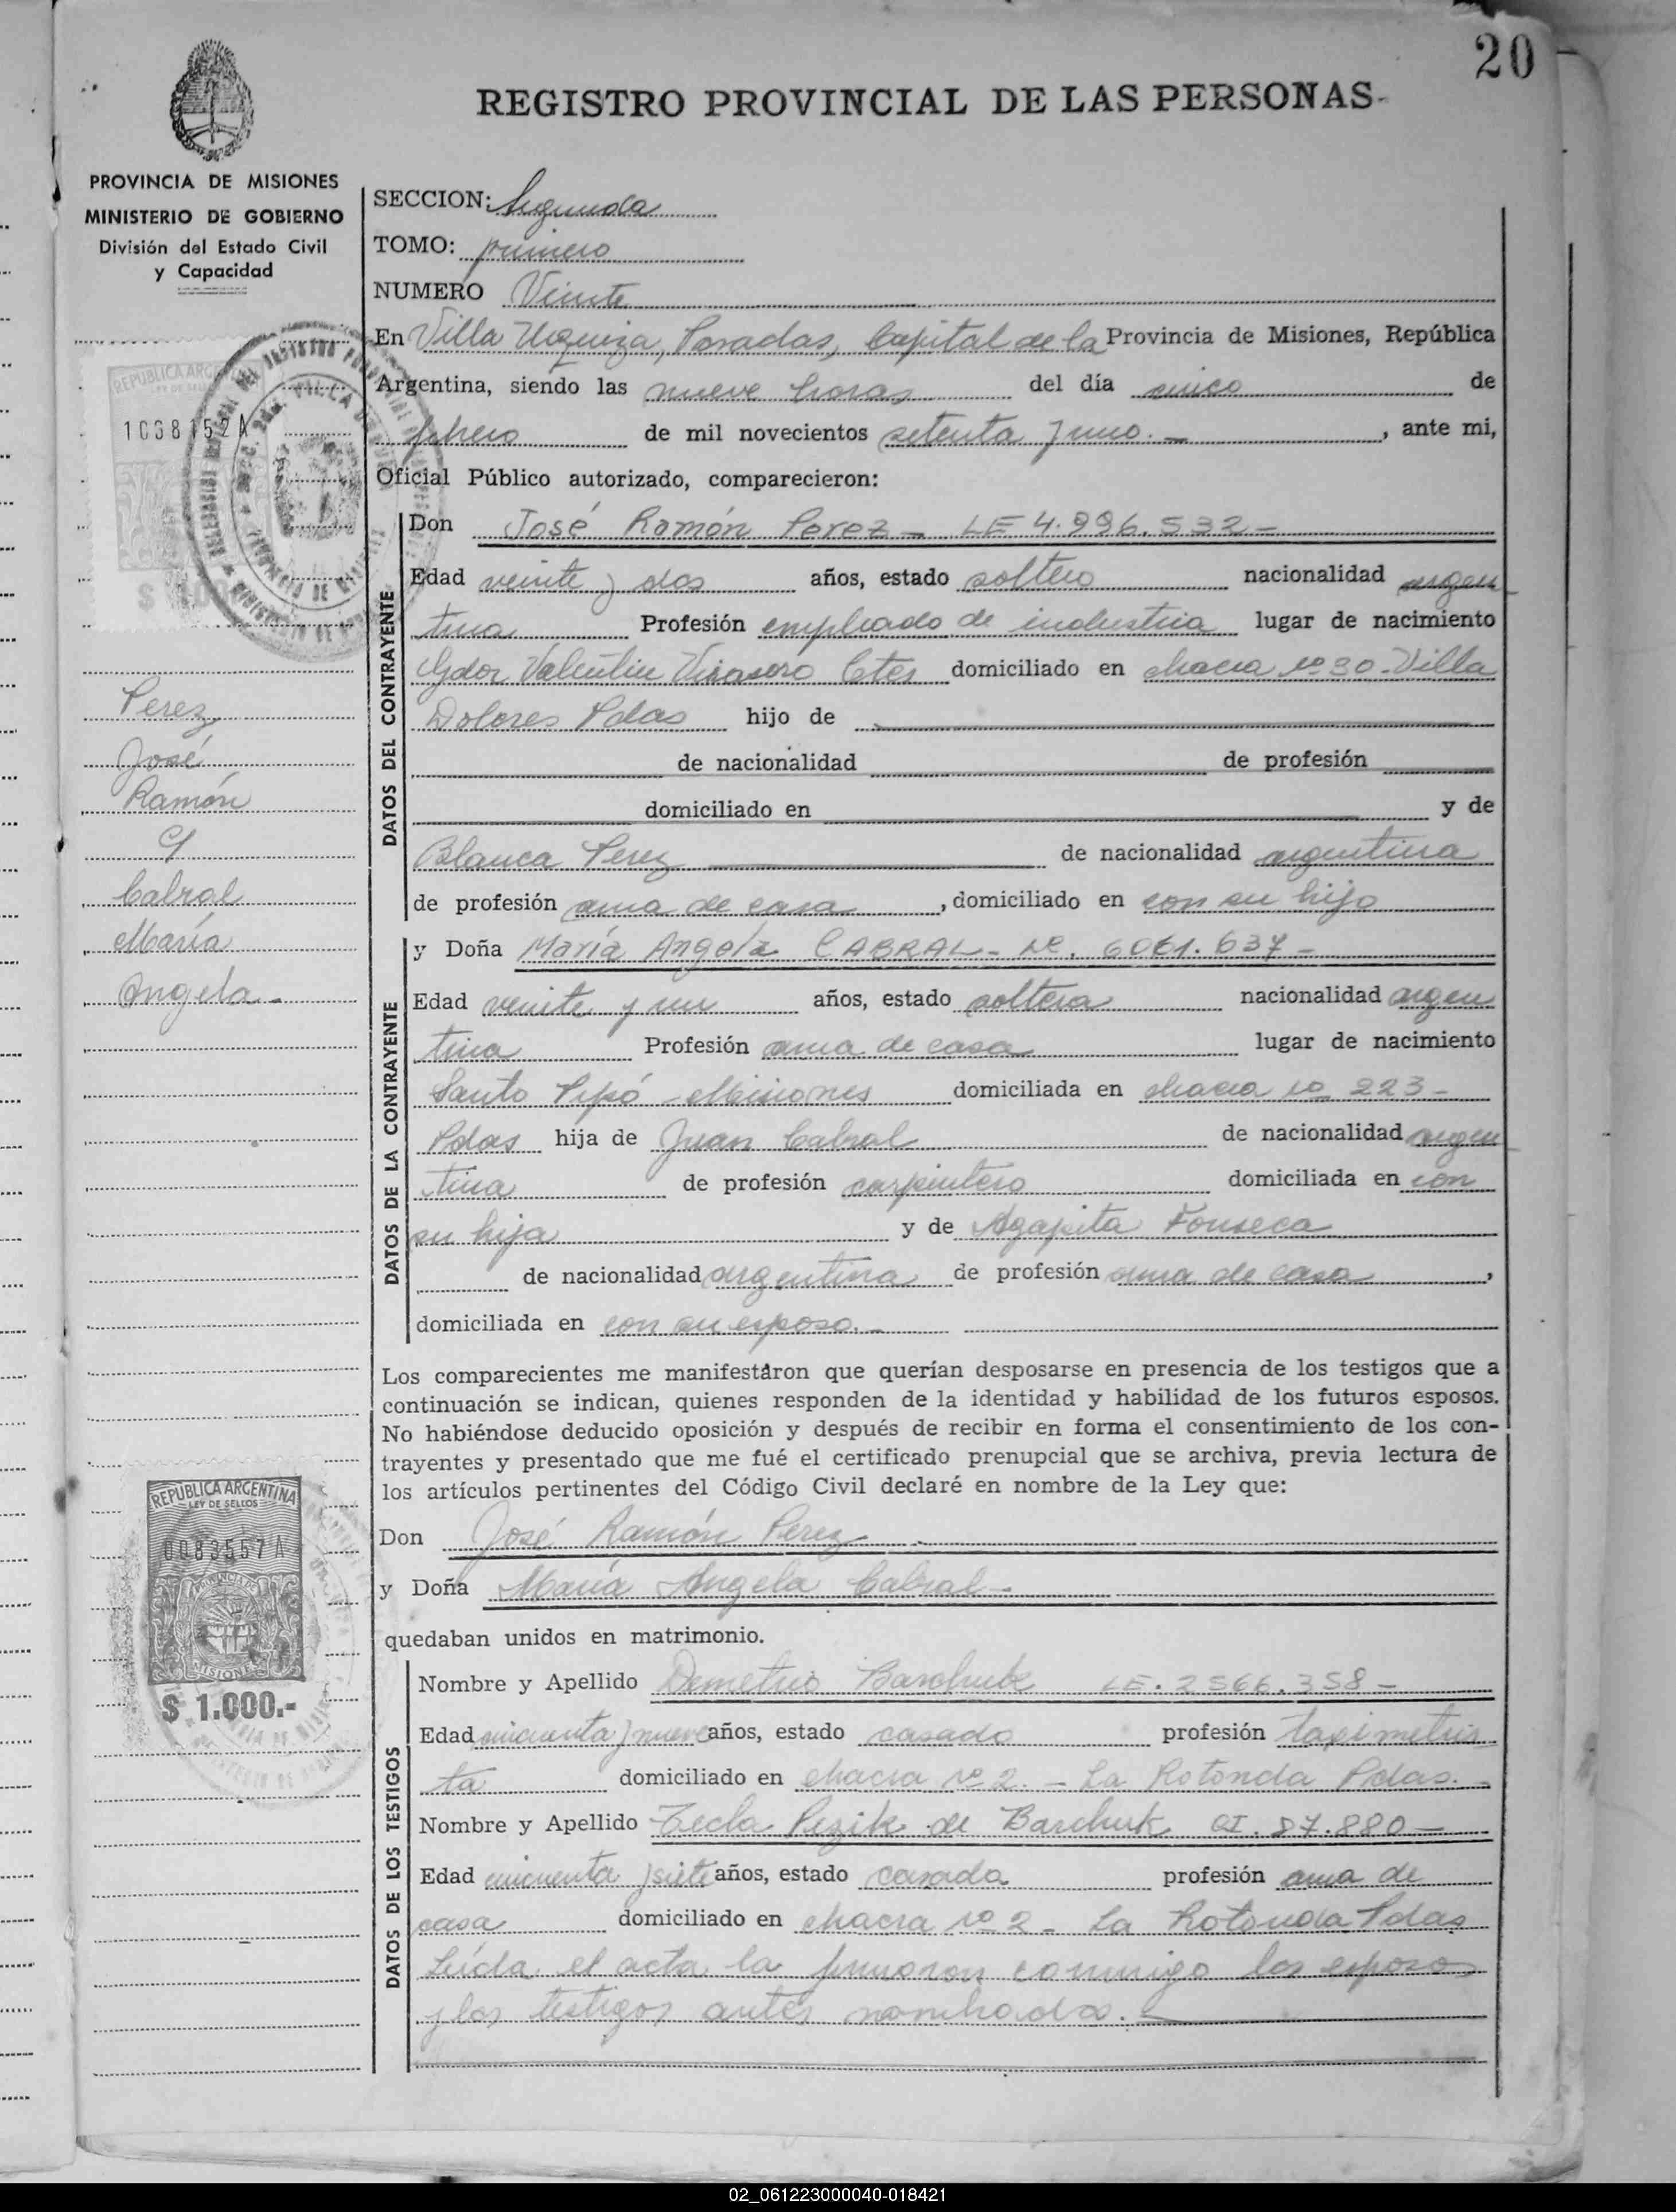 20
REGISTRO PROVINCIAL DE LAS PERSONAS
PROVINCIA DE MISIONES
MINISTERIO DE GOBIERNO
División del Estado Civil
y Capacidad
SECCION: Segunda
TOMO: primero
NUMERO Veinte
En Villa Urquiza, Posadas, Capital de la Provincia de Misiones, República
Argentina, siendo las nueve horas del día cinco de
febrero de mil novecientos setenta y uno. — , ante mi,
Oficial Público autorizado, comparecieron:
DATOS DEL CONTRAYENTE
Don José Ramón Perez - LE 4.996.532 -
Edad veinte y dos años, estado soltero nacionalidad argen
tina Profesión empleado de industria lugar de nacimiento
Gdor Valentin Virasoro Ctes domiciliado en chacra nº 30 - Villa
Dolores Pdas hijo de
de nacionalidad de profesión
domiciliado en y de
Blanca Perez de nacionalidad argentina
de profesión ama de casa , domiciliado en con su hijo
DATOS DE LA CONTRAYENTE
y Doña María Angela CABRAL - Nº. 6061.637 -
Edad veinte y un años, estado soltera nacionalidad argen
tina Profesión ama de casa lugar de nacimiento
Santo Pipó - Misiones domiciliada en chacra nº 223 -
Pdas hija de Juan Cabral de nacionalidad argen
tina de profesión carpintero domiciliada en con
su hija y de Agapita Fonseca
de nacionalidad argentina de profesión ama de casa ,
domiciliada en con su esposo. -
Los comparecientes me manifestaron que querían desposarse en presencia de los testigos que a
continuación se indican, quienes responden de la identidad y habilidad de los futuros esposos.
No habiéndose deducido oposición y después de recibir en forma el consentimiento de los con-
trayentes y presentado que me fué el certificado prenupcial que se archiva, previa lectura de
los artículos pertinentes del Código Civil declaré en nombre de la Ley que:
Don José Ramón Perez
y Doña María Angela Cabral -
quedaban unidos en matrimonio.
DATOS DE LOS TESTIGOS
Nombre y Apellido Demetrio Barchuk LE. 2566.358 -
Edad cincuenta y nueve años, estado casado profesión taximetris
ta domiciliado en chacra nº 2. - La Rotonda Pdas. -
Nombre y Apellido Tecla Pezik de Barchuk CI. 87.880 -
Edad cincuenta y siete años, estado casada profesión ama de
casa domiciliado en chacra nº 2 - La Rotonda Pdas
Leída el acta la firmaron conmigo los esposos
y los testigos antes nombrados. -
REPUBLICA ARG
1038152A
Perez
José
Ramón
y
Cabral
María
Angela -
REPUBLICA ARGENTINA
LEY DE SELLOS
0083557A
MISIONES
$ 1.000.-
02_061223000040-018421